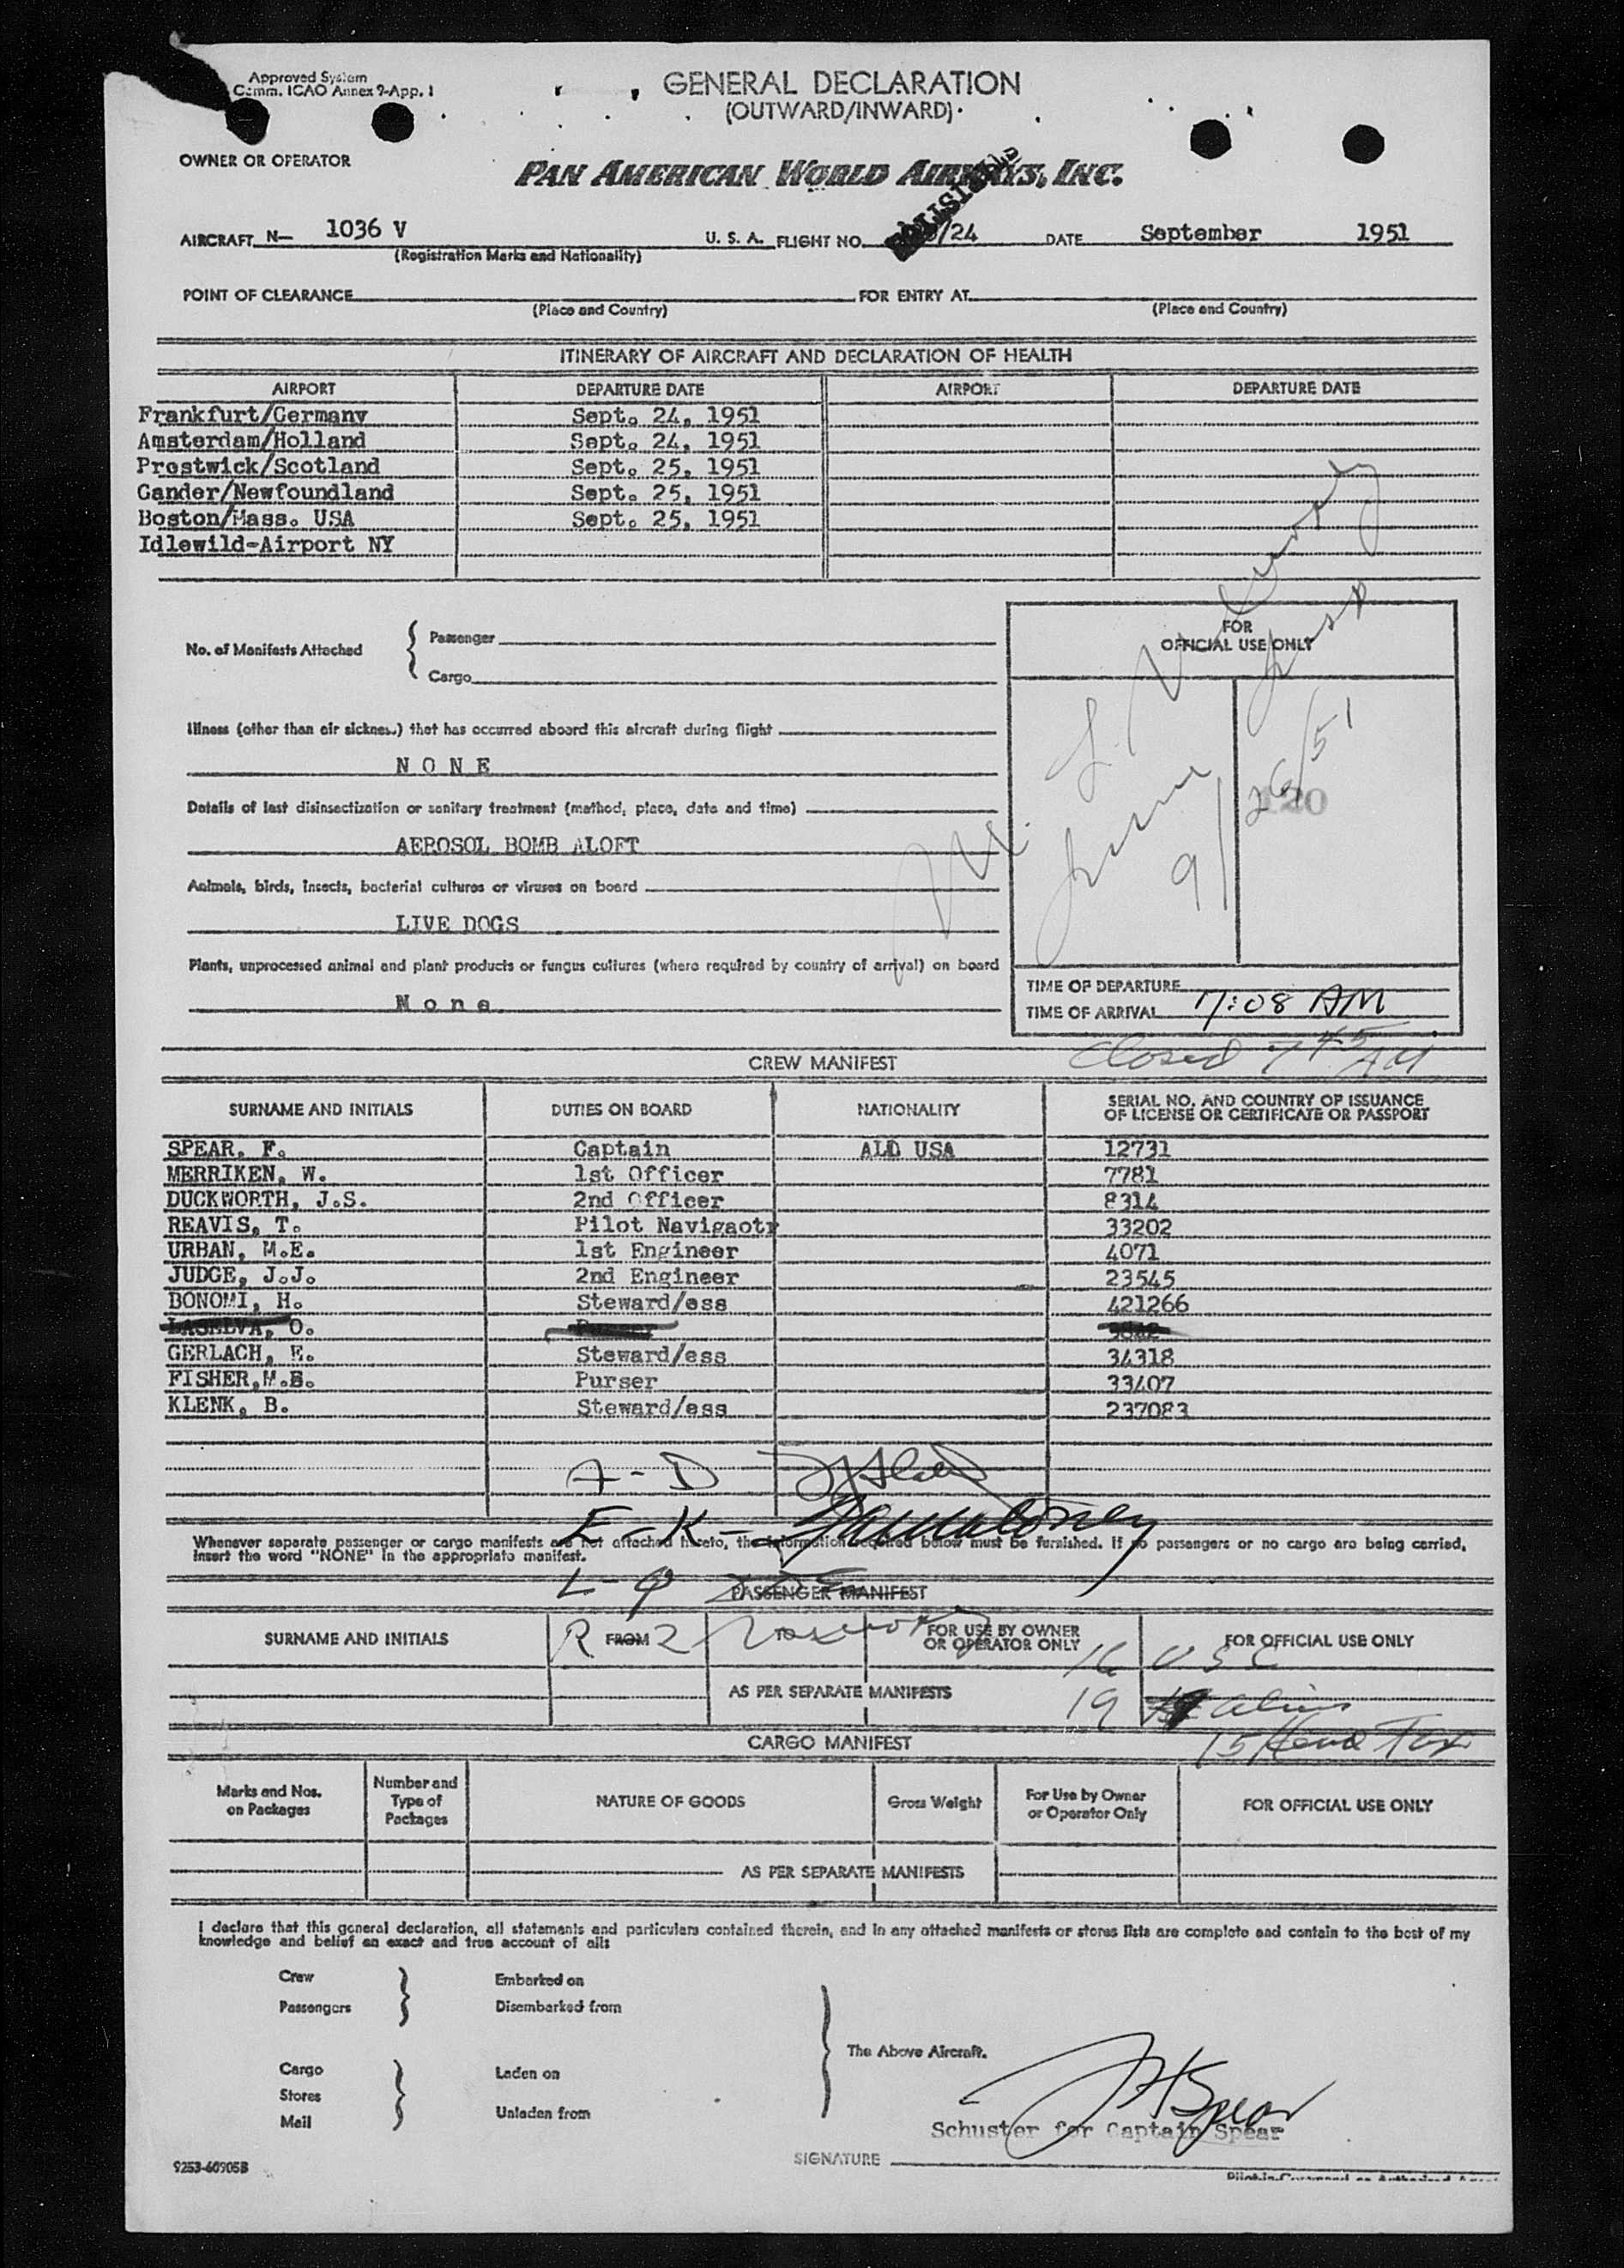 Approved System
Comm. ICAO Annex 9-App. 1
GENERAL DECLARATION
(OUTWARD/INWARD)
OWNER OR OPERATOR
PAN AMERICAN WORLD AIRWAYS, INC.
AIRCRAFT N- 1036 V U. S. A. FLIGHT NO. /24 DATE September 1951
(Registration Marks and Nationality)
POINT OF CLEARANCE FOR ENTRY AT
(Place and Country) (Place and Country)
ITINERARY OF AIRCRAFT AND DECLARATION OF HEALTH
AIRPORT DEPARTURE DATE AIRPORT DEPARTURE DATE
Frankfurt/Germany Sept. 24, 1951
Amsterdam/Holland Sept. 24, 1951
Prestwick/Scotland Sept. 25, 1951
Gander/Newfoundland Sept. 25, 1951
Boston/Mass. USA Sept. 25, 1951
Idlewild-Airport NY
No. of Manifests Attached
Passenger
Cargo
FOR
OFFICIAL USE ONLY
Illness (other than air sickness) that has occurred aboard this aircraft during flight
N O N E
9/26/51
Details of last disinsectization or sanitary treatment (method, place, date and time)
AEROSOL BOMB ALOFT
Animals, birds, insects, bacterial cultures or viruses on board
LIVE DOGS
Plants, unprocessed animal and plant products or fungus cultures (where required by country of arrival) on board
N o n e
TIME OF DEPARTURE
TIME OF ARRIVAL 7:08 AM
Closed 7 45 AM
CREW MANIFEST
SURNAME AND INITIALS DUTIES ON BOARD NATIONALITY SERIAL NO. AND COUNTRY OF ISSUANCE
OF LICENSE OR CERTIFICATE OR PASSPORT
SPEAR, F. Captain ALL USA 12731
MERRIKEN, W. 1st Officer 7781
DUCKWORTH, J.S. 2nd Officer 8314
REAVIS, T. Pilot Navigaotr 33202
URBAN, M.E. 1st Engineer 4071
JUDGE, J.J. 2nd Engineer 23545
BONOMI, H. Steward/ess 421266
LASELVA, O. Purser
GERLACH, E. Steward/ess 34318
FISHER,M.B. Purser 33407
KLENK, B. Steward/ess 237083
A - D
E - K -
Whenever separate passenger or cargo manifests are not attached hereto, the information required below must be furnished. If no passengers or no cargo are being carried,
insert the word "NONE" in the appropriate manifest.
L - Q
PASSENGER MANIFEST
SURNAME AND INITIALS FROM TO FOR USE BY OWNER
OR OPERATOR ONLY FOR OFFICIAL USE ONLY
R Z
16 USC
AS PER SEPARATE MANIFESTS
19 aliens
15 Head Tax
CARGO MANIFEST
Marks and Nos.
on Packages
Number and
Type of
Packages
NATURE OF GOODS
Gross Weight
For Use by Owner
or Operator Only
FOR OFFICIAL USE ONLY
AS PER SEPARATE MANIFESTS
I declare that this general declaration, all statements and particulars contained therein, and in any attached manifests or stores lists are complete and contain to the best of my
knowledge and belief an exact and true account of all:
Crew Embarked on
Passengers Disembarked from
The Above Aircraft.
Cargo Laden on
Stores
Mail Unladen from
Schuster for Captain Spear
SIGNATURE
9253-60905B